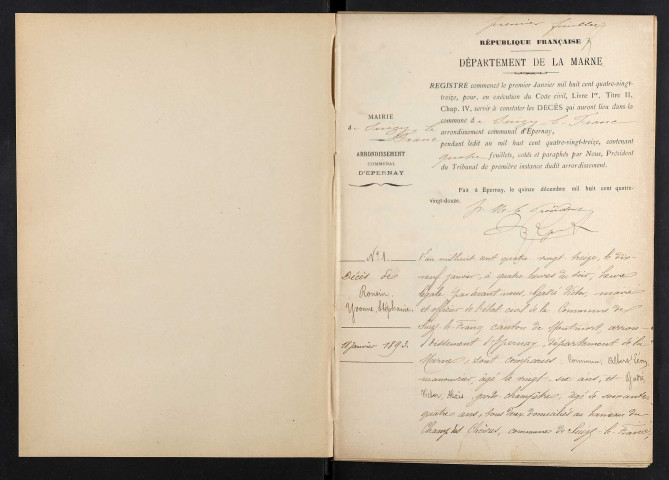 premier feuillet
RÉPUBLIQUE FRANÇAISE
DÉPARTEMENT DE LA MARNE
REGISTRE commencé le premier Janvier mil huit cent quatre-vingt-
treize, pour, en exécution du Code civil, Livre Ier, Titre II,
Chap. IV, servir à constater les DÉCÈS qui auront lieu dans la
commune de Suizy le Franc
arrondissement communal d'Epernay,
pendant ledit an mil huit cent quatre-vingt-treize, contenant
quatre feuillets, cotés et paraphés par Nous, Président
du Tribunal de première instance dudit arrondissement.
Fait à Epernay, le quinze décembre mil huit cent quatre-
vingt-douze.
MAIRIE
de Suizy le
Franc
ARRONDISSEMENT
COMMUNAL
D'ÉPERNAY
N° 1.
Décès de
Yvonne Stéphanie
janvier 1893.
L'an mil huit cent quatre vingt treize, le dix
neuf janvier, à quatre heures du soir, heure
légale, par devant nous, Victor, maire
et officier de l'état civil de la Commune de
Suizy-le-Franc canton de Montmort, arron-
dissement d'Epernay, département de la
Marne, sont comparus
manouvrier, âgé de vingt-six ans, et
Victor, garde champêtre, âgé de soixante
quatre ans, tous deux domiciliés au hameau du
Champ des Chèvres, commune de Suizy-le-Franc,